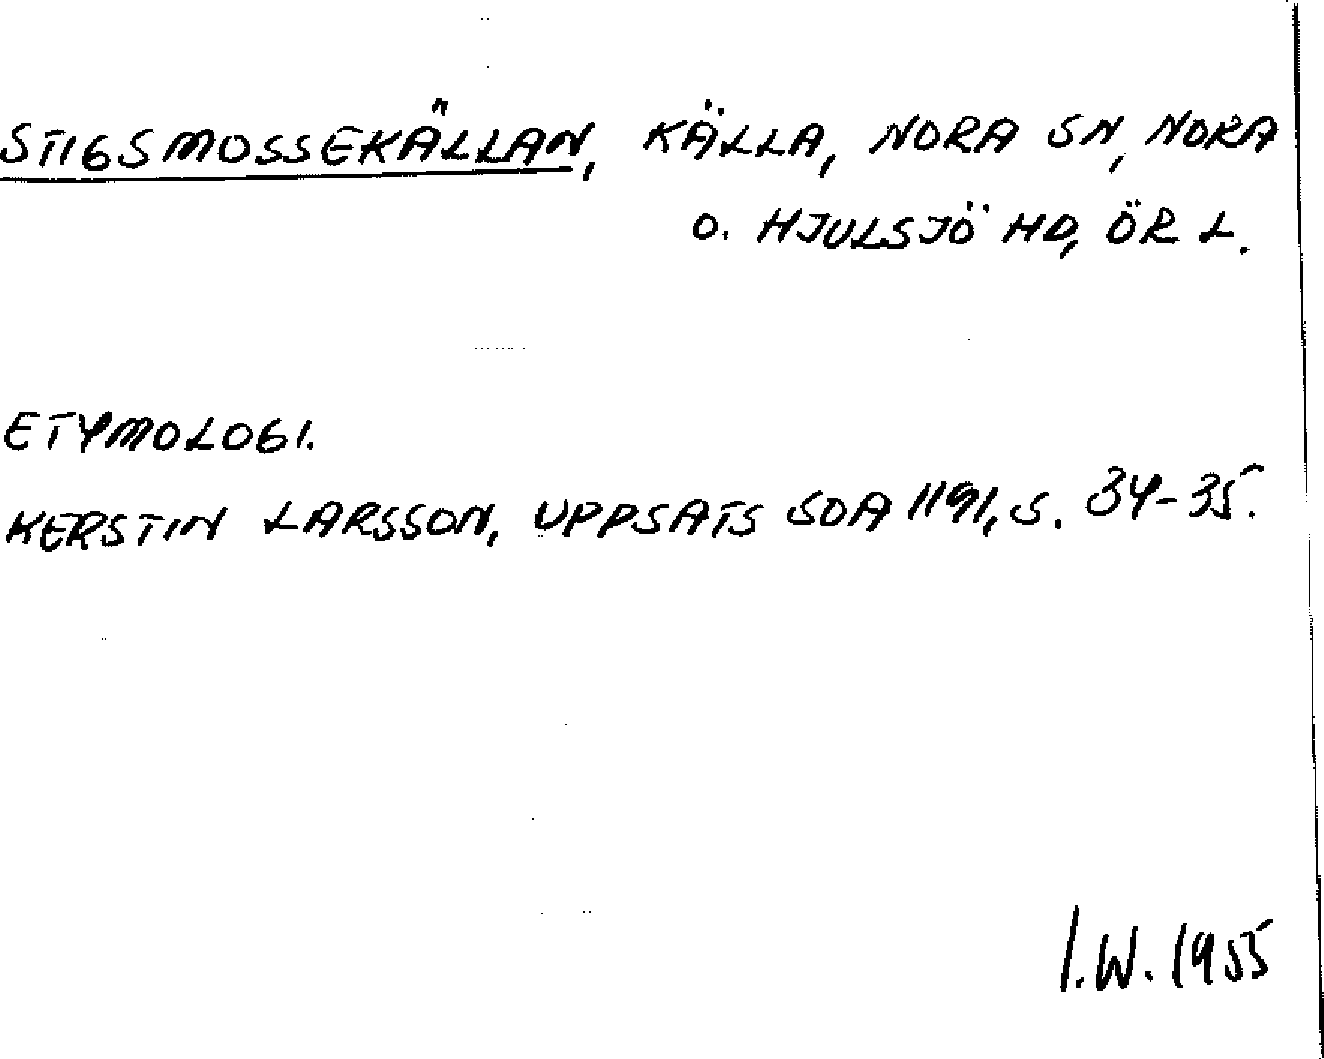 STIGSMOSSEKÄLLAN, KÄLLA, NORA SN, NORA
O. HJULSJÖ HD, ÖR L.
ETYMOLOGI.
KERSTIN LARSSON, UPPSATS SOA 1191, S. 34-35.
I.W. 1955